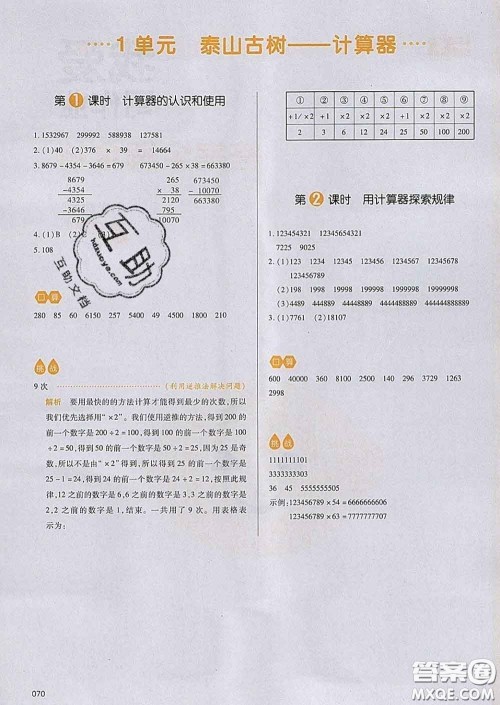 1 单元　泰山古树——计算器
第 1 课时　计算器的认识和使用
1. 1532967　299992　588938　127581
2. (1)40　(2)376　×　39　=　14664
3. 8679－4354－3646＝679　673450－265×38＝663380
8679　265　673450
－4354　×　38　－10070
4325　2120　663380
－3646　795
679　10070
4. (1)B　(2)C
5. 108
口算
280　85　60　6150　257　5400　49　4500　1210　2180
挑战
9 次 (利用逆推法解决问题)
解析　要用最快的的方法计算才能得到最少的次数,所以
我们优先选择用“×2”。我们使用逆推的方法得到 200 的
前一个数字是 200÷2＝100,得到 100 的前一个数字是 100
÷2＝50,得到 50 的前一个数字是 50÷2＝25,因为 25 是奇
数,所以不是由“×2”得到的,所以得到 25 的前一个数字是
25－1＝24,得到 24 的前一个数字是 24÷2＝12,按照此规
律,12 之前的数字是 6,6 之前的数字是 3,3 之前的数字是
2,2 之前的数字是 1,结束。一共用了 9 次。用表格表
示为:
① ② ③ ④ ⑤ ⑥ ⑦ ⑧ ⑨
+1/×2 +1 ×2 ×2 ×2 +1 ×2 ×2 ×2
2 3 6 12 24 25 50 100 200
第 2 课时　用计算器探索规律
1. 123454321　12345654321
7225　9025
2. (1)123　1234　12345　123456　1234567　12345678
123456789
(2)3489　334889　33348889　3333488889
(3)4489　444889　44448889　4444488889　444444888889
3. (1)7761　(2)18107
口算
600　40000　360　8100　2500　140　296　3729　1263
2998
挑战
1111111101
3333333303
36　45　5555555505
示例:123456789×54＝6666666606
123456789×63＝7777777707
互助
hdzuoye.com
互助文档
070
答案圈
MXQE.COM